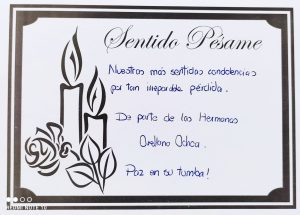 Sentido Pésame
Nuestras más sentidas condolencias
por tan irreparable pérdida.
De parte de los Hermanos
Orellana
Paz en su tumba!
REDMI NOTE 10